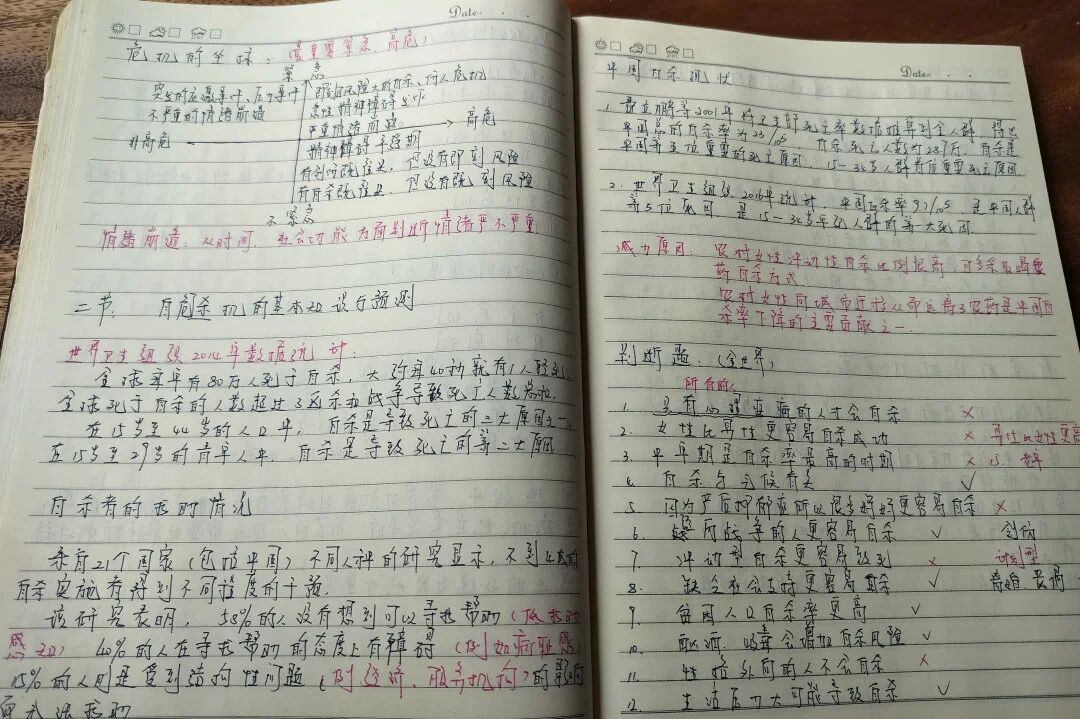 Date:
危机的坐标：(最重要紧急、高危)
紧急
突发的应激事件、压力事件
不严重的情绪崩溃
急性精神障碍发作
严重情绪崩溃
精神障碍平稳期
非高危
高危
但没有即刻风险
有自杀既往史，但没有既刻风险
不紧急
情绪崩溃：从时间、社会功能方面判断情绪严不严重
二节：自杀危机的基本知识与预测
世界卫生组织2014年数据统计：
全球每年有80万人死于自杀，大约每40秒就有1人轻生，
全球死于自杀的人数超过凶杀和战争导致死亡人数总和
在15岁至44岁的人口中，自杀是导致死亡的三大原因之一，
在15岁至29岁的青年人中，自杀是导致死亡的第二大原因
自杀者的求助情况
来自21个国家（包括中国）不同人种的研究显示，不到
自杀实施者得到不同程度的干预
该研究表明，58%的人没有想到可以寻求帮助（低求助
感知）40%的人在寻求帮助的态度上有障碍（例如病耻感）
15%的人则是受到结构性问题（例经济、服务机构）的影响
Date:
中国自杀现状
1.
2001年的卫生部死亡率数据推算到全人群，得出
中国总的自杀率为23/10⁵，自杀死亡人数为28.7万，自杀是
中国第五位重要的死亡原因，15-34岁人群首位重要死亡原因
2. 世界卫生组织2016年统计，中国自杀率9.7/10⁵ 是中国人群
第5位死因，是15-34岁年轻人群的第一大死因
成为原因：农村女性冲动性自杀比例很高，可多采取
药自杀方式
农村女性向城市迁移从而远离了农药是中国自
杀率下降的主要贡献之一
判断题：(全世界)
所有的人
1. 只有心理疾病的人才会自杀 ×
2. 女性比男性更容易自杀成功 × 男性比女性更高
3. 中年期是自杀率最高的时期 ×
4. 自杀与气候有关 ✓
5. 因为产后抑郁症所以很多妈妈更容易自杀 ×
6. 经历战争的人更容易自杀 ✓ 创伤
7. 冲动型自杀更容易救到 × 计划型
8. 缺乏社会支持更容易自杀 ✓ 离婚、丧偶
9. 贫困人口自杀率更高 ✓
10. 酗酒、吸毒会增加自杀风险 ✓
11. 性格外向的人不会自杀 ×
12. 生活压力大可能导致自杀 ✓